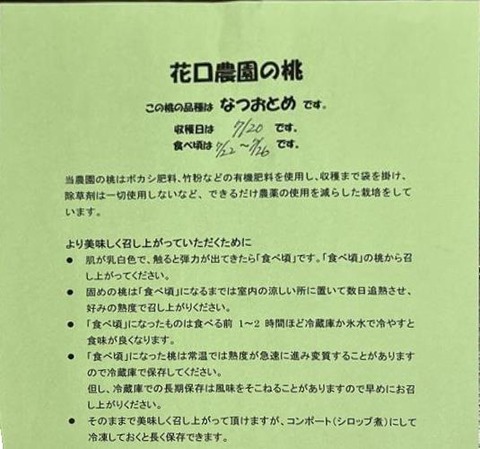 花口農園の桃
この桃の品種は なつおとめ です。
収穫日は 7/20 です。
食べ頃は 7/22 ～ 7/26 です。
当農園の桃はボカシ肥料、竹粉などの有機肥料を使用し、収穫まで袋を掛け、
除草剤は一切使用しないなど、できるだけ農薬の使用を減らした栽培をして
います。
より美味しく召し上がっていただくために
● 肌が乳白色で、触ると弾力が出てきたら「食べ頃」です。「食べ頃」の桃から召
し上がってください。
● 固めの桃は「食べ頃」になるまでは室内の涼しい所に置いて数日追熟させ、
好みの熟度で召し上がりください。
● 「食べ頃」になったものは食べる前 1～2 時間ほど冷蔵庫か氷水で冷やすと
食味が良くなります。
● 「食べ頃」になった桃は常温では熟度が急速に進み変質することがあります
ので冷蔵庫で保存してください。
但し、冷蔵庫での長期保存は風味をそこねることがありますので早めにお召
し上がりください。
● そのままで美味しく召し上がって頂けますが、コンポート（シロップ煮）にして
冷凍しておくと長く保存できます。